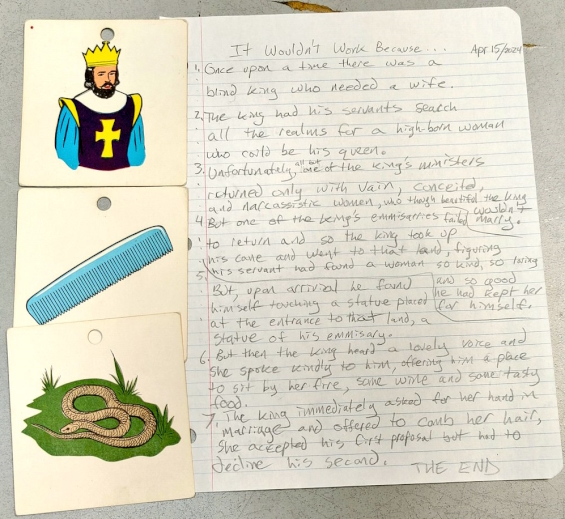 It Wouldn't Work Because... Apr 15/2024
1. Once upon a time there was a
blind king who needed a wife.
2. The king had his servants search
all the realms for a high-born woman
who could be his queen.
3. Unfortunately, all but one of the king's ministers
returned only with vain, conceited,
and narcissistic women, who though beautiful the king
4. But one of the king's emissarries failed wouldn't marry.
to return and so the king took up
his cane and went to that land, figuring
his servant had found a woman so kind, so loving
5. But, upon arrival he found and so good
himself touching a statue placed he had kept her
at the entrance to that land, a for himself.
statue of his emmisary.
6. But then the king heard a lovely voice and
she spoke kindly to him, offering him a place
to sit by her fire, some wine and some tasty
food.
7. The king immediately asked for her hand in
marriage and offered to comb her hair,
she accepted his first proposal but had to
decline his second. THE END